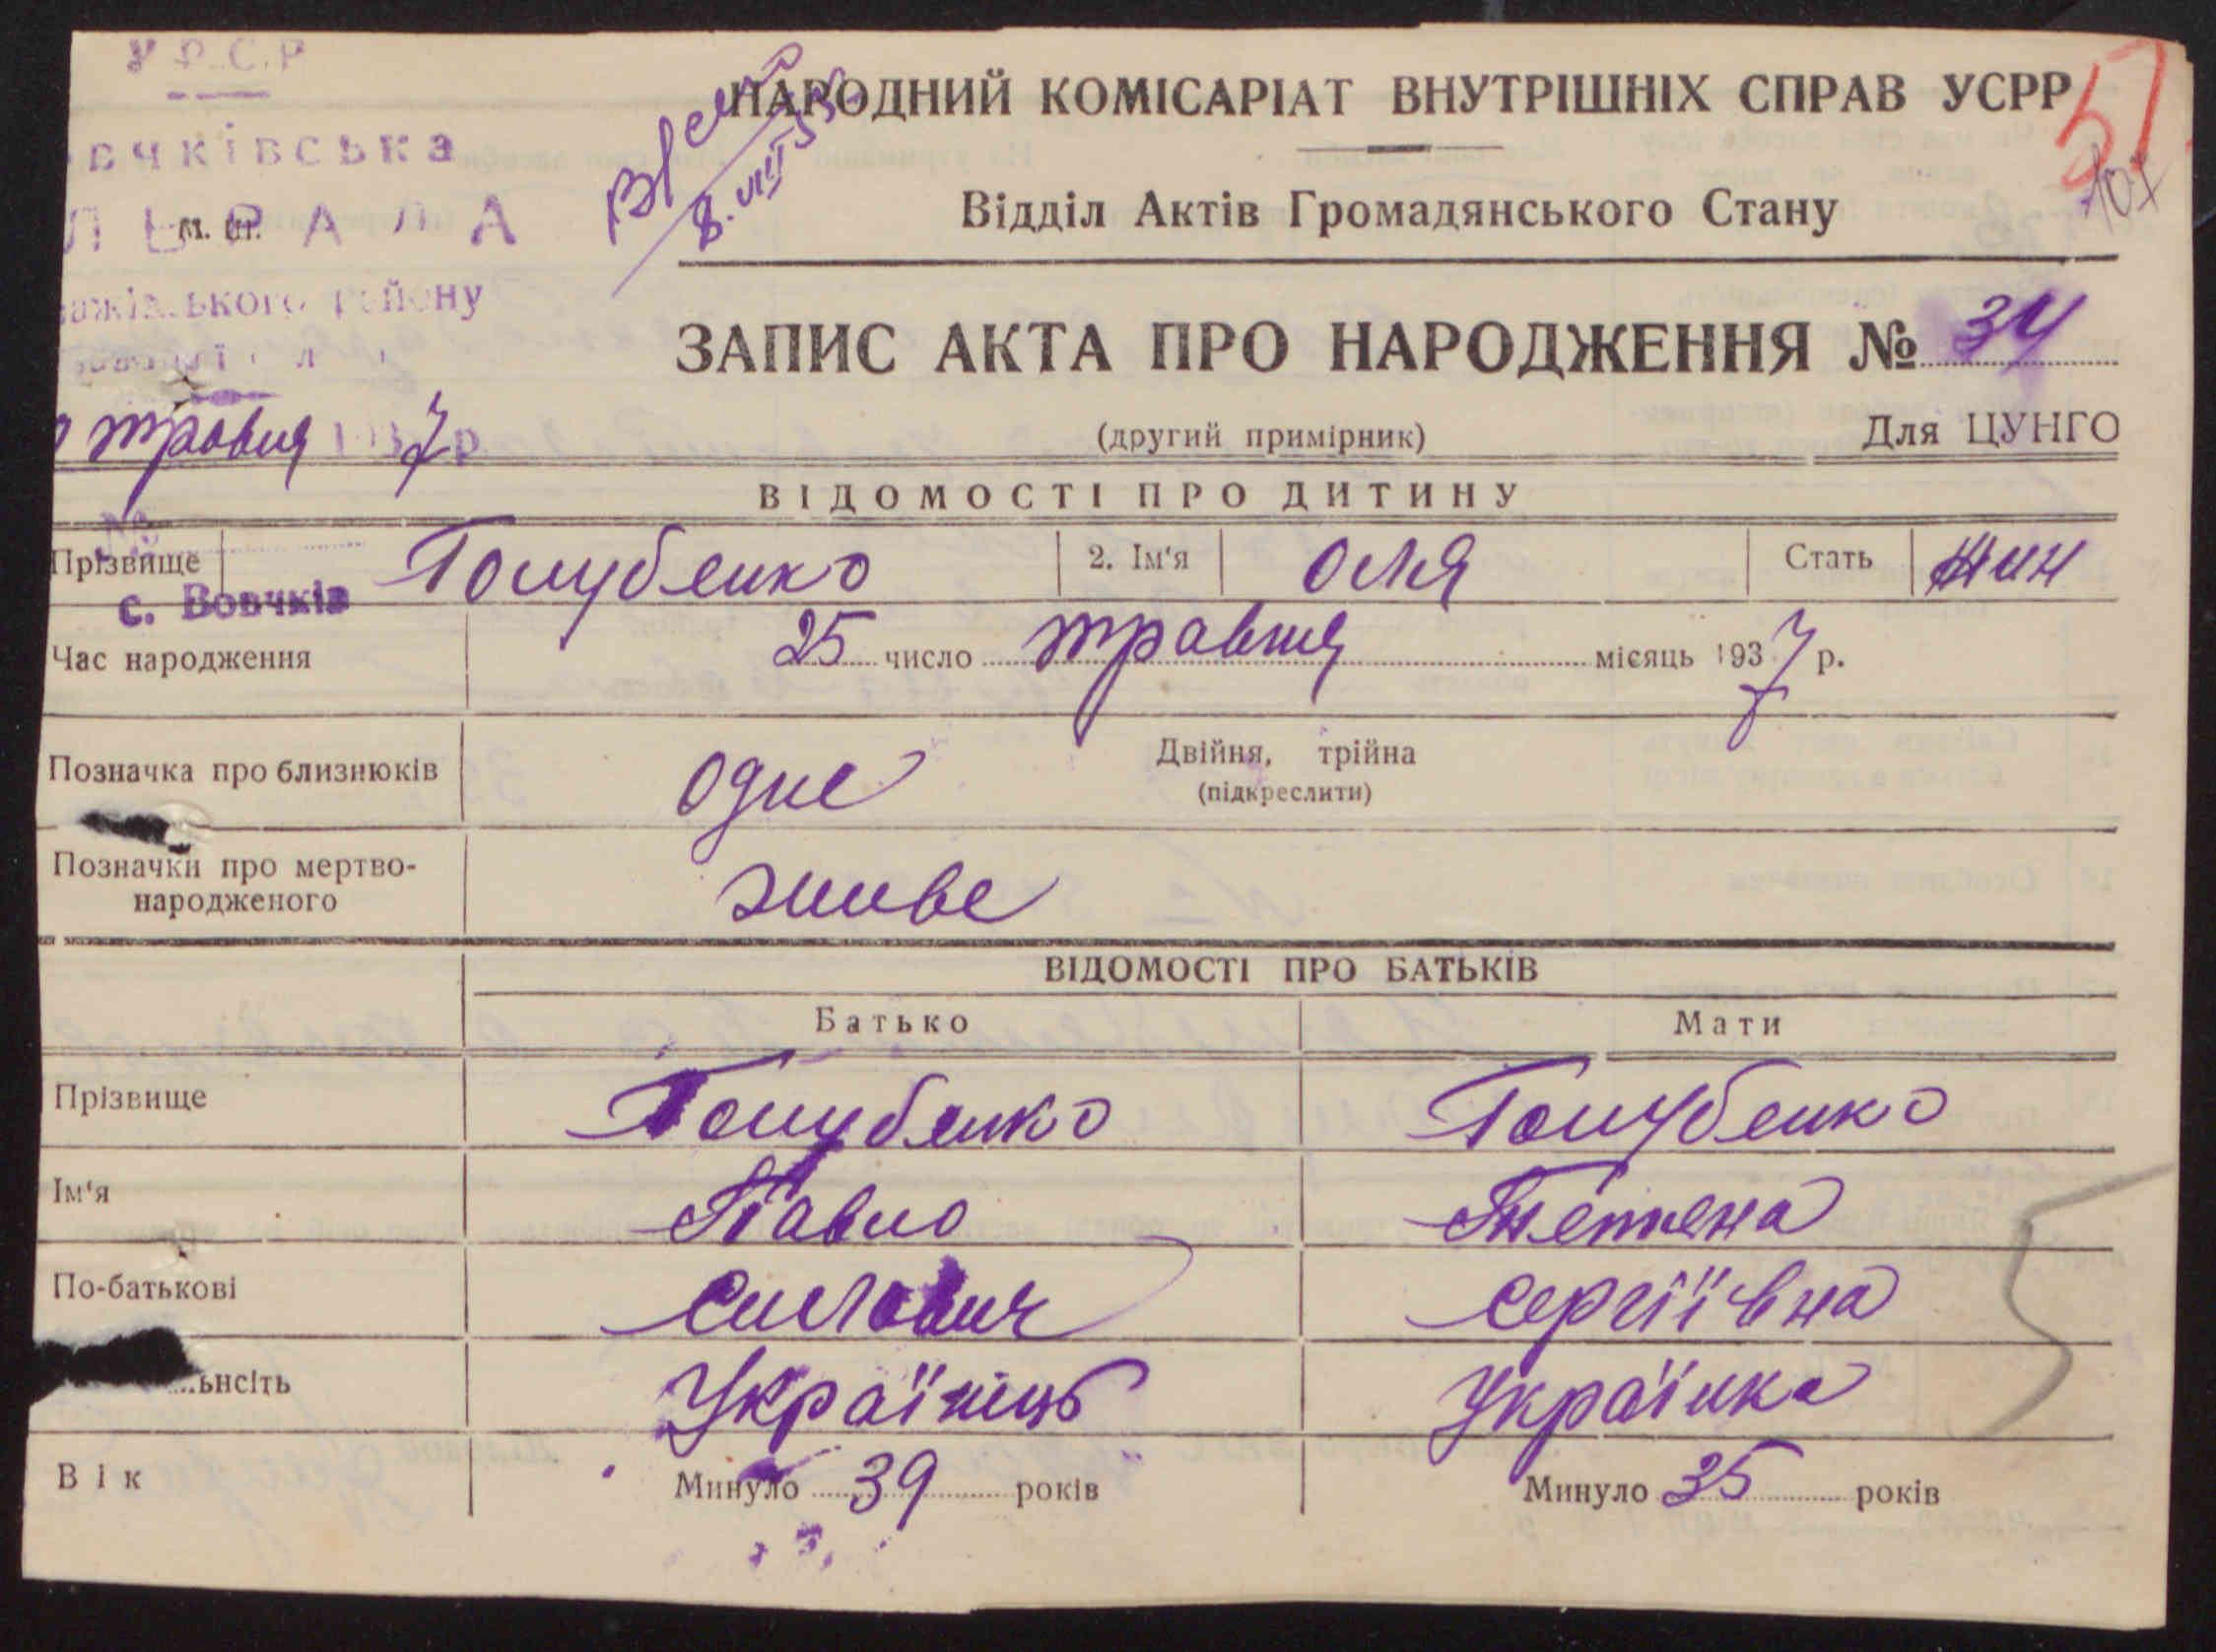 УРСР
НАРОДНИЙ КОМІСАРІАТ ВНУТРІШНІХ СПРАВ УСРР
57
вчківська
8.VIII
107
Відділ Актів Громадянського Стану
ЛЬРАДА
м. шт.
району
ЗАПИС АКТА ПРО НАРОДЖЕННЯ № 34
травня 1937 р
(другий примірник)
Для ЦУНГО
ВІДОМОСТІ ПРО ДИТИНУ
№
Прізвище Голубенко 2. Ім'я Оля Стать жин
с. Вовчків
Час народження 25 число травня місяць 1937 р.
Позначка про близнюків одне Двійня, трійна
(підкреслити)
Позначки про мертво-
народженого живе
ВІДОМОСТІ ПРО БАТЬКІВ
Батько Мати
Прізвище Голубенко Голубенко
Ім'я Павло Тетяна
По-батькові Силович Сергіївна
ьнсіть Українець Українка
Вік Минуло 39 років Минуло 35 років